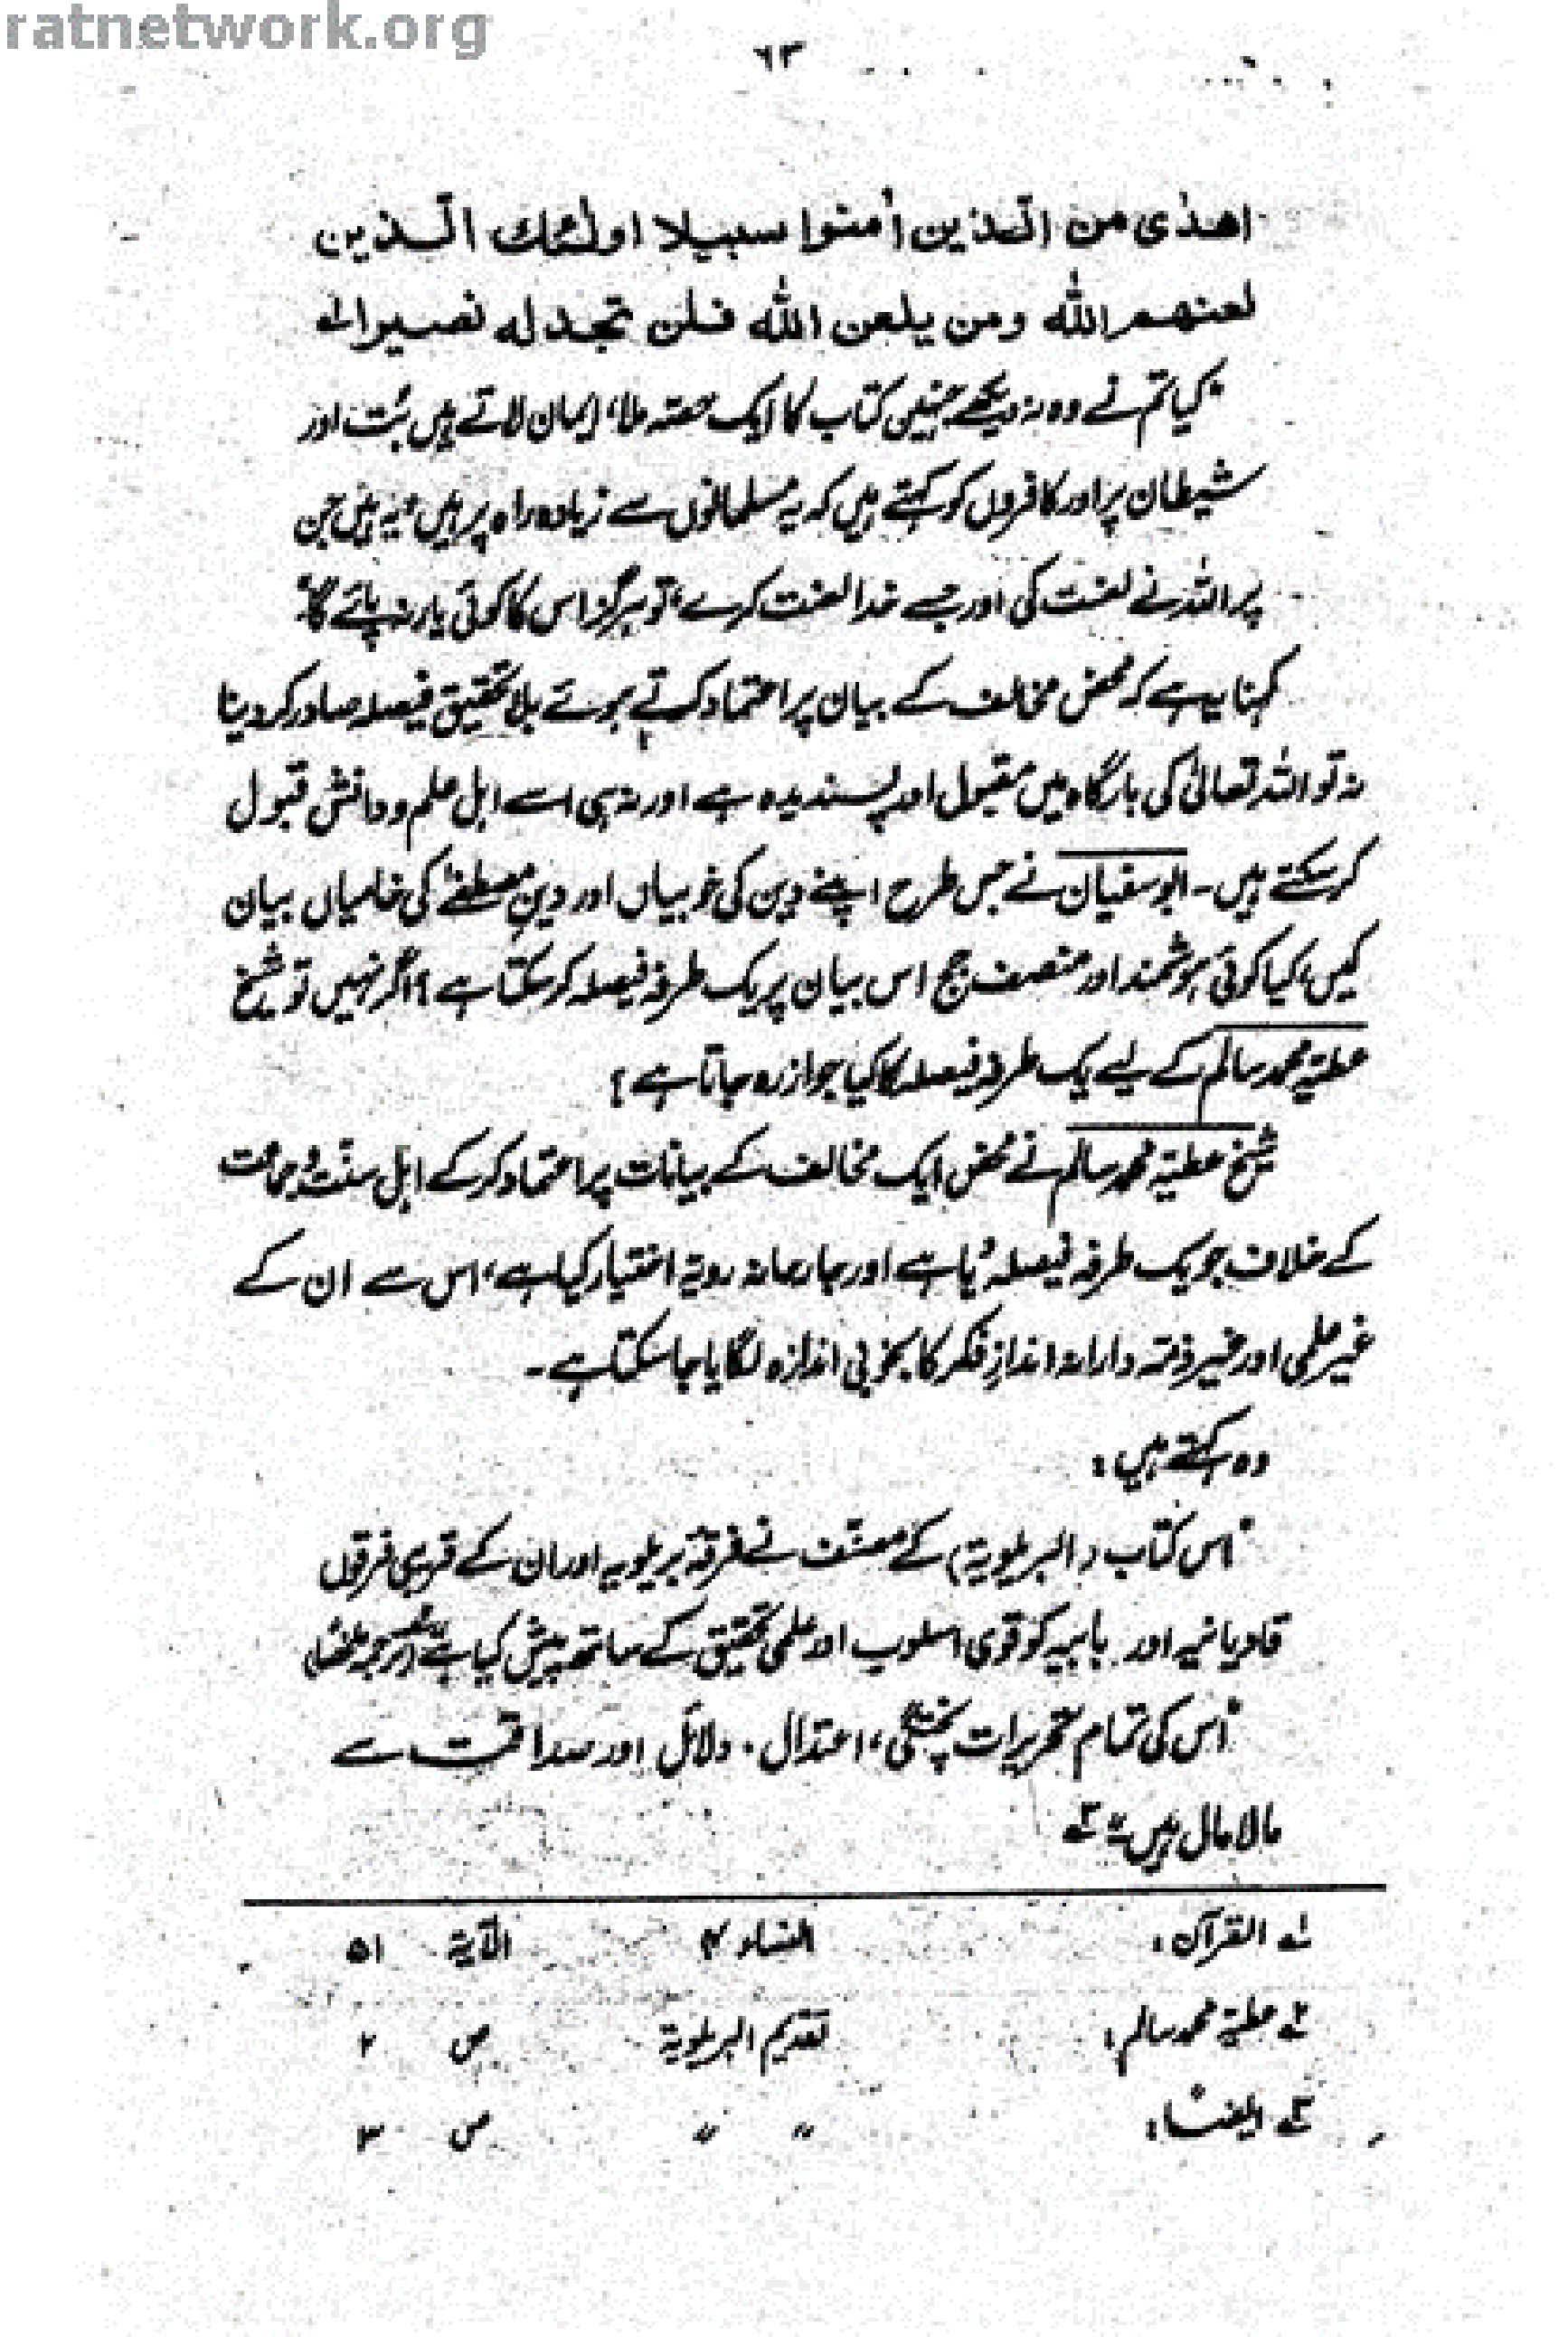 ratnetwork.org
٦٣
اھدٰی من الّذین اٰمنوا سبیلا اولٰئک الّذین
لعنھم اللّٰہ ومن یلعن اللّٰہ فلن تجد لہ نصیرا لہ
"کیا تم نے وہ نہ دیکھے جنہیں کتاب کا ایک حصّہ ملا، ایمان لاتے ہیں بُت اور
شیطان پر اور کافروں کو کہتے ہیں کہ یہ مسلمانوں سے زیادہ راہ پر ہیں، یہ ہیں جن
پر اللہ نے لعنت کی اور جسے خدا لعنت کرے، تو ہرگز اس کا کوئی یار نہ پائے گا"
کہنا یہ ہے کہ محض مخالف کے بیان پر اعتماد کرتے ہوئے بلا تحقیق فیصلہ صادر کر دینا
نہ تو اللہ تعالیٰ کی بارگاہ میں مقبول اور پسندیدہ ہے اور نہ ہی اسے اہلِ علم و دانش قبول
کر سکتے ہیں۔ ابوسفیان نے جس طرح اپنے دین کی خوبیاں اور دینِ مصطفےٰ کی خامیاں بیان
کیں، کیا کوئی ہوشمند اور منصف جج اس بیان پر یک طرفہ فیصلہ کر سکتا ہے؟ اگر نہیں تو شیخ
عطیۃ محمد سالم کے لیے یک طرفہ فیصلہ کا کیا جواز رہ جاتا ہے؟
شیخ عطیۃ محمد سالم نے محض ایک مخالف کے بیانات پر اعتماد کر کے اہلِ سنّت و جماعت
کے خلاف جو یک طرفہ فیصلہ دیا ہے اور جارحانہ رویّہ اختیار کیا ہے، اس سے ان کے
غیر علمی اور غیر ذمّہ دارانہ اندازِ فکر کا بخوبی اندازہ لگایا جا سکتا ہے۔
وہ کہتے ہیں:
"اس کتاب (البریلویۃ) کے مصنّف نے فرقۂ بریلویہ اور ان کے قریبی فرقوں
قادیانیہ اور بابیہ کو قوی اسلوب اور علمی تحقیق کے ساتھ پیش کیا ہے" (ترجمہ ملخصًا)
"اس کی تمام تحریرات پختگی، اعتدال، دلائل اور صداقت سے
مالا مال ہیں" ۳ے
۱ے القرآن: النساء ۴ الآیۃ ۵۱
۲ے عطیۃ محمد سالم: تقدیم البریلویۃ ص ۲
۳ے ایضًا: 〃 〃 ص ۳